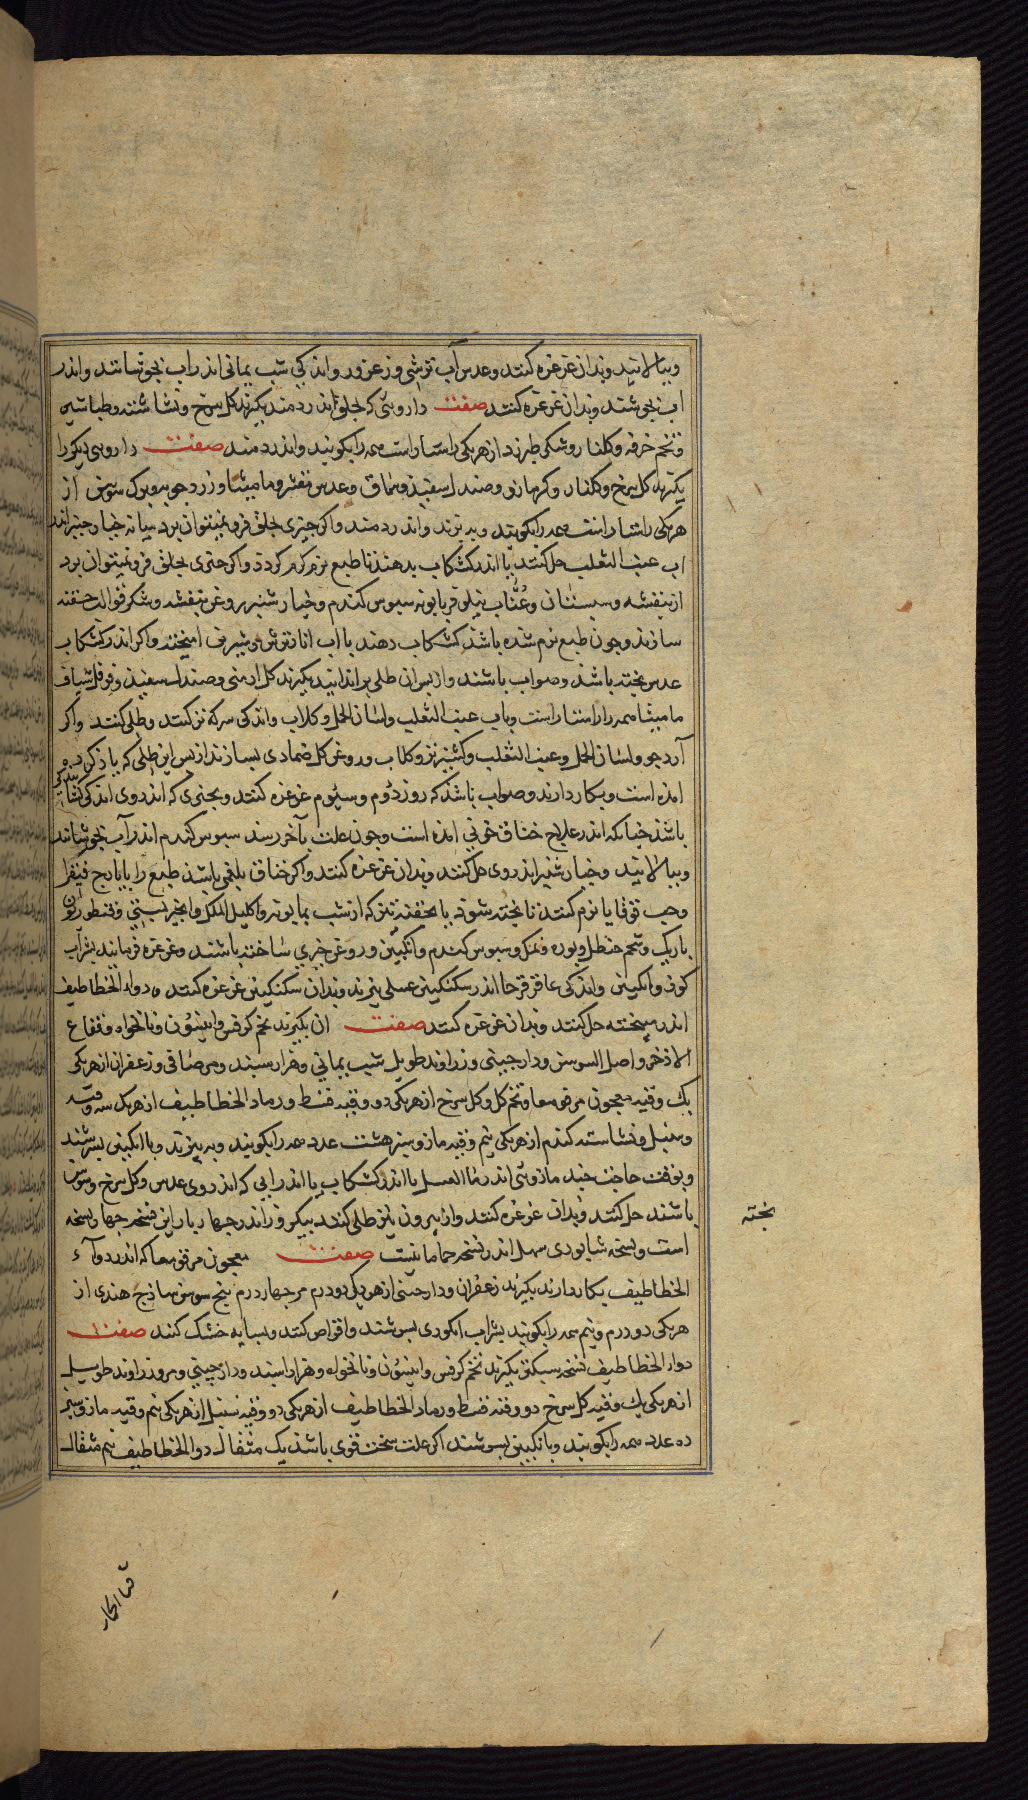 وبپالایند وبدان غرغره کنند وعدس آب ترشی و زعرور واندکی شب یمانی اندر آب بجوشانند واندر
آب بجوشند وبدان غرغره کنند صفت داروئی که بحلق اندر دمند بگیرند کل سرخ ونشاسته وطباشیر
وتخم خرفه وکلنار وشکر طبرزد از هر یکی راستاراست همه را بکوبند واندر دمند صفت داروی دیکر را
بکیرند کل سرخ وکلنار وکزمازو وصندل سفید وسماق وعدس مقشر ومامیثا وزرد چوبه وبرک سوسن از
هر یکی راستاراست همه را بکوبند وببیزند واندر دمند واکر چیزی بحلق فرو بتوان برد میانه خیار چنبر اندر
آب عنب الثعلب حل کنند یا اندر کشکاب بدهند تا طبع نرم کردد واکر چیزی بحلق فرو نمیتوان برد
از بنفشه وسپستان وعناب نیلوفر بابونه سبوس کندم وخیار شنبر وروغن بنفشه وشکر فوالد حقنه
سازند وچون طبع نرم شده باشد کشکاب دهند با آب انار ترش وشیرین امیخته واکر اندر کشکاب
عدس پخته باشد وصواب باشند وازپس ان طلی بر انداید بکیرند کل ارمنی وصندل سفید وفوفل شیاف
مامیثا همه را راستاراست وبآب عنب الثعلب ولسان الحمل وکلاب واندکی سرکه تر کنند وطلی کنند واکر
آرد جو ولسان الحمل وعنب الثعلب وکشنیز تر وکلاب وروغن کل ضمادی بسازند از پس این طلی که یاد کرده
امده است وبکار دارند وصواب باشد که روز دوم وسیوم غرغره کنند وبچیزی که اندر وی اندکی
باشد چنانکه اندر علاج خناق خونی امده است وچون علت بآخر رسد سبوس کندم اندر آب بجوشانند
وبپالایند وخیار شنبر اندر وی حل کنند وبدان غرغره کنند واکر خناق بلغمی باشد طبع را بایارج فیقرا
وحب قوقایا نرم کنند تا پخته شود یا بحقنه تیز که از شب بابونه واکلیل الملک وانجیر بستی وقنطوریون
باریک وشحم حنظل وبوره ونمک وسبوس کندم وانکبین وروغن خیری ساخته باشند وغرغره فرمایند بشراب
کوز وانکبین واندکی عاقرقرحا اندر سکنکبین عسلی بپزند وبدان سکنکبین غرغره کنند ودواء الخطاطیف
اندر میبخته حل کنند وبدان غرغره کنند صفت ان بکیرند تخم کرفس وانیسون ونانخواه وفقاح
الاذخر واصل السوس ودارچینی وزراوند طویل شب یمانی وهزار سپند ومر صافی وزعفران از هر یکی
یک وقیه معجون مرقومعا وتخم کل وکل سرخ از هر یکی دو وقیه قسط ورماد الخطاطیف از هر یک سه وقیه
وسنبل ونشاسته کندم از هر یکی نیم وقیه مازو سبز هشت عدد همه را بکوبند وببیزند وبا انکبین بسرشند
وبوقت حاجت چند مازوئی اندر ماء العسل یا اندر کشکاب یا اندر آبی که اندر وی عدس وکل سرخ وسوس
باشند حل کنند وبدان غرغره کنند واز بیرون نیز طلی کنند بیکر قو اندر چهار بار این نسخه چهار بسخه
است ونسخه شاپوری سهل اندر نسخه حاما نیست صفت معجون مرقومعا که اندر دوآء
الخطاطیف بکار دارند بکیرند زعفران ودارچینی از هر یکی دو درم مر چهار درم بیخ سوسن ساذج هندی از
هر یکی دو درم ونیم همه را بکوبند بشراب انکوری بسرشند واقراص کنند وبسایه خشک کنند صفت
دواء الخطاطیف نسخه سبکتر بکیرند تخم کرفس وانیسون ونانخواه وهزار اسپند ودارچینی ومر وزراوند طویل
از هر یکی یک وقیه کل سرخ دو وقیه قسط ورماد الخطاطیف از هر یکی دو وقیه سنبل از هر یکی نیم وقیه مازو سبز
ده عدد همه را بکوبند وبانکبین بسرشند اکر علت سخت قوی باشد یک مثقال دواء الخطاطیف نیم مثقال
پخته
قثا الحمار